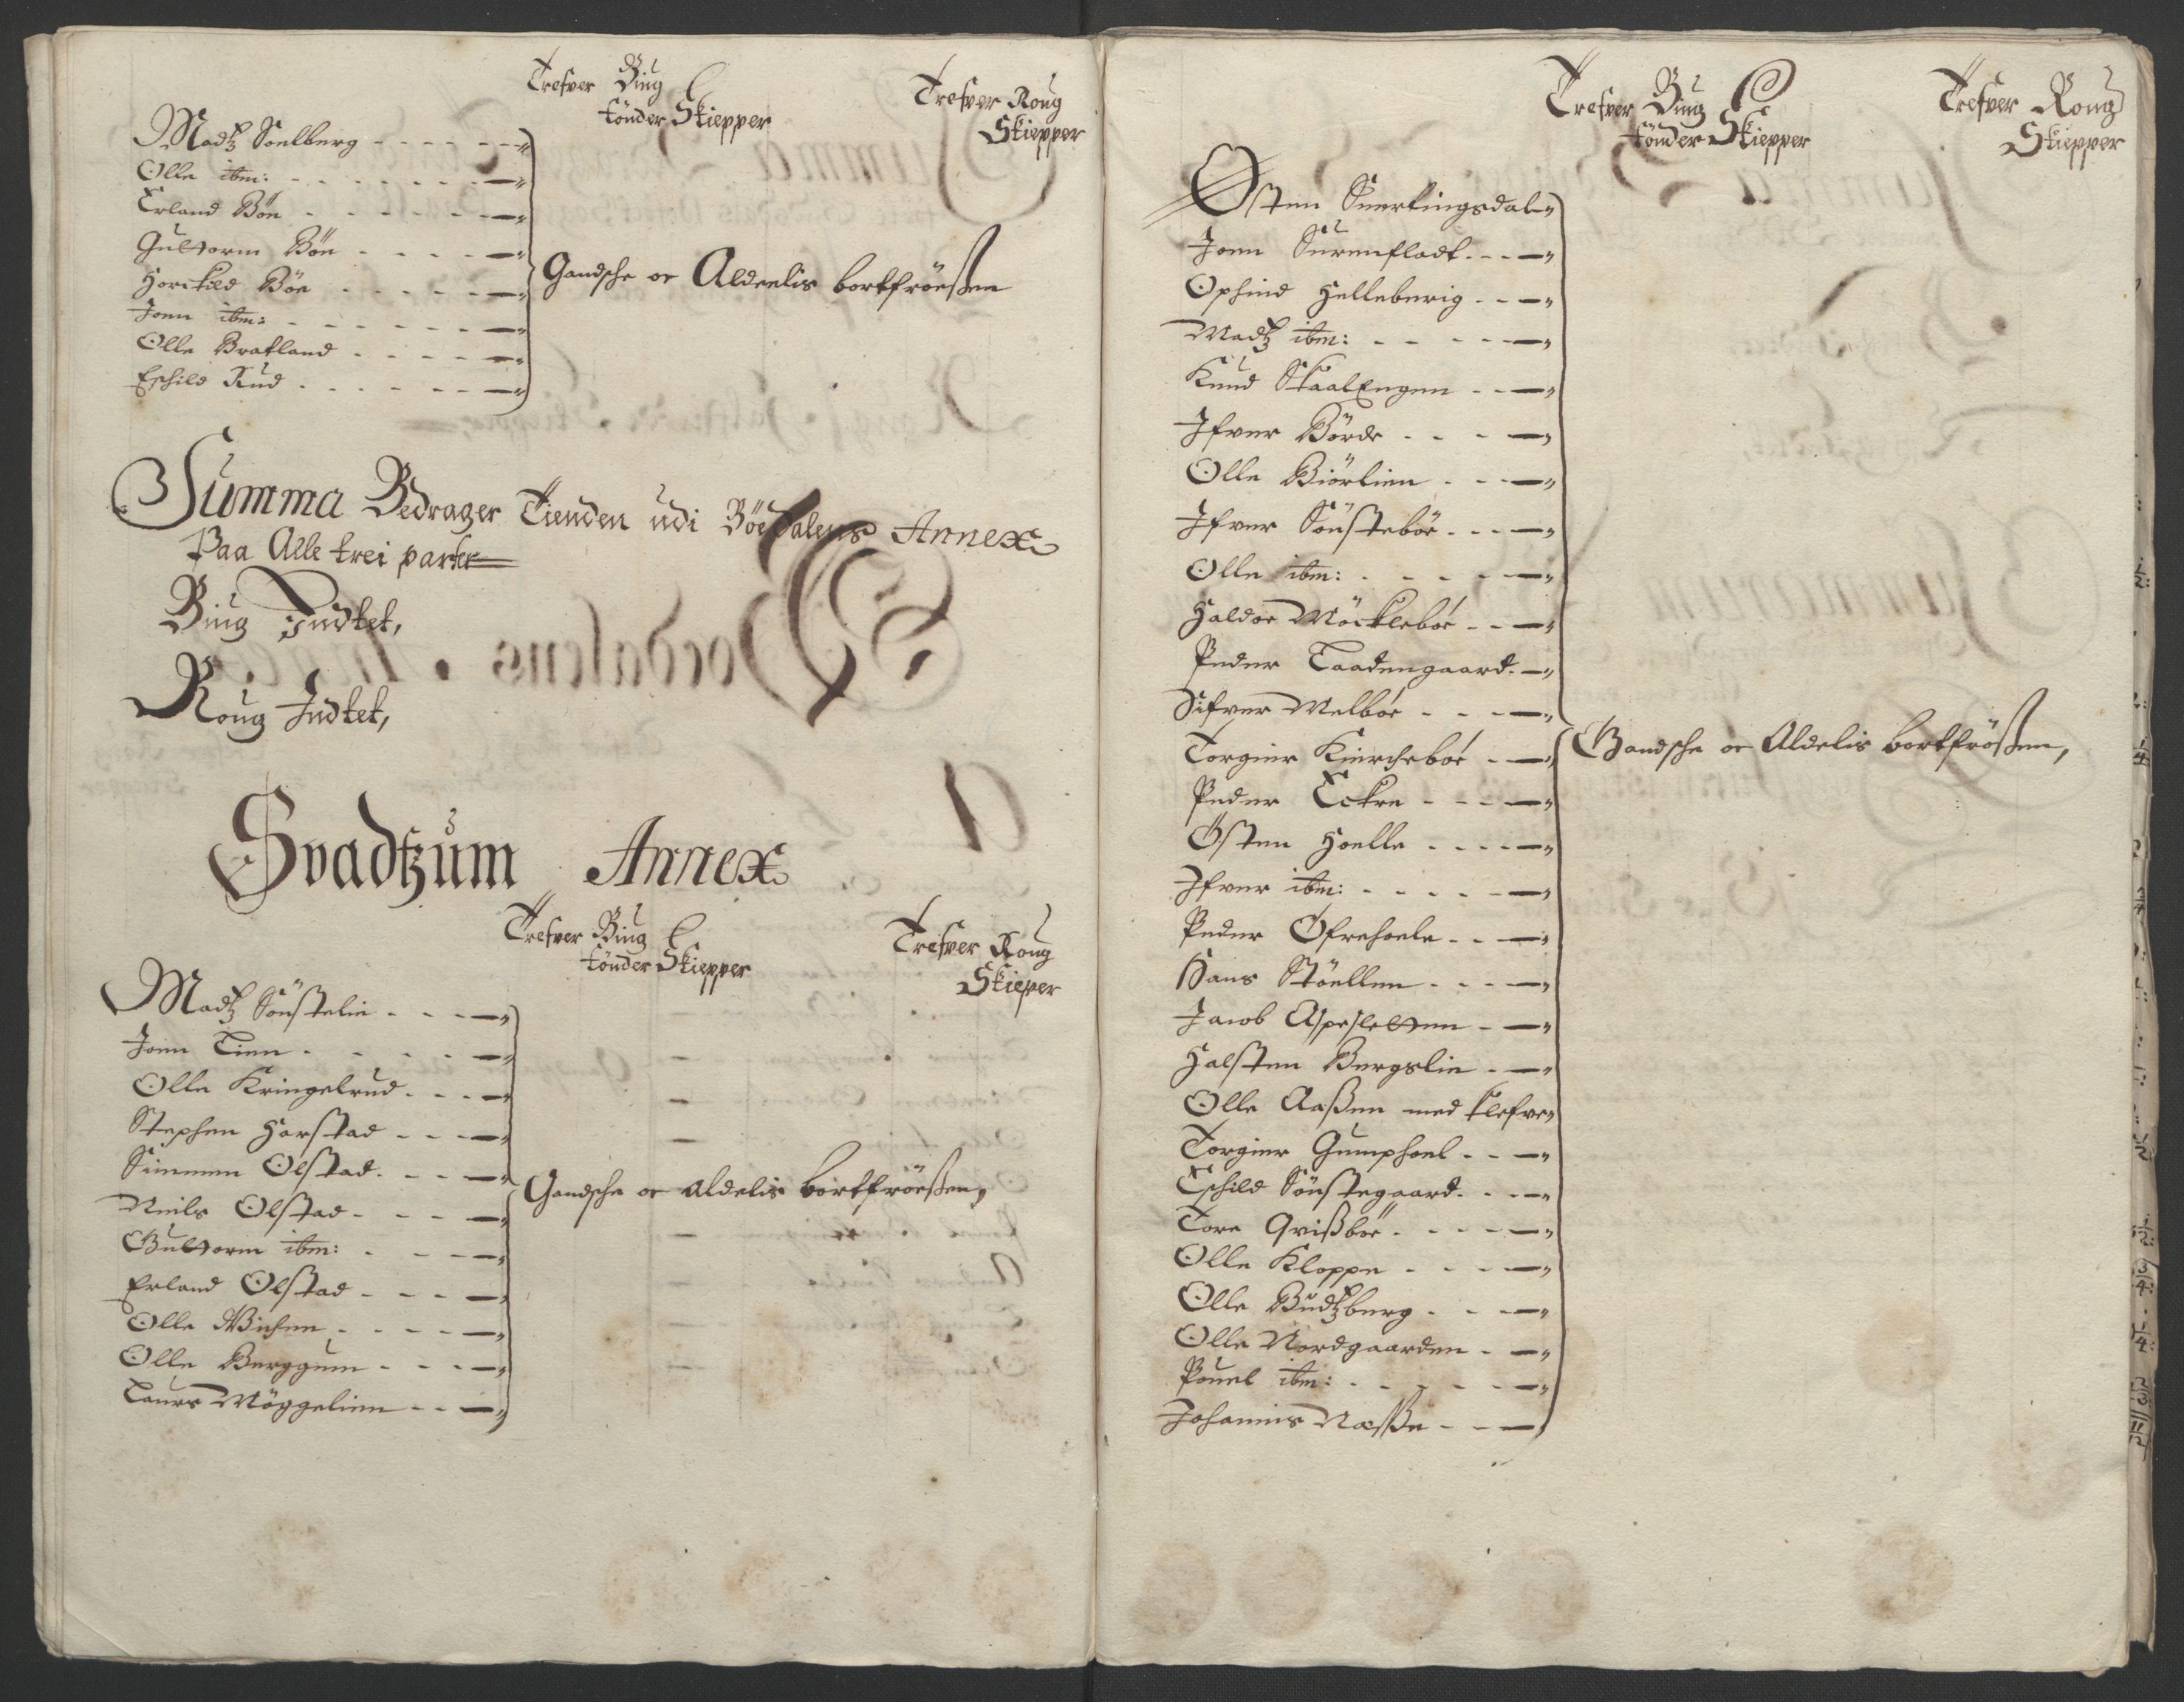 Trefver Biug
tönder Skiepper
Trefver Roug
Skiepper
Madtz Soelberg
Olle ibm:
Erland Böe
Gulttorm Böe
Joen ibm:
Olle Bratland
Eschild Rud
Gandsche oc Aldeelis bortfröeßen
Summa Bedrager Tienden udi Böedalens Annex
Paa Alle trei parter
Biug Indtet,
Roug Indtet,
Svadtzum Annex
Trefver Biug
tönder Skiepper
Trefver Roug
Skieper
Madtz Sönstelie
Joen Lien
Olle Kringelrud
Stephen Harstad
Simmen Olstad
Niels Olstad
Gulttorm ibm:
Erland Olstad
Olle Wichen
Olle Berggum
Laurs Möggelien
Gandsche oc aldelis bortfröeßen,
Trefver Biug
tönder Skiepper
Trefver Roug
Skiepper
Østen Suerkingsdal
Joen Surenfladt
Ophind Helleberig
Madtz ibm:
Knud SkaalEngen
Ifver Börde
Olle Biörlien
Ifver Sönstebör
Olle ibm:
Haldor Möcklebör
Peder Laadengaard
Sifver Melbör
Torgier Kierchebör
Peder Eckre
Östen Hoelle
Ifver ibm:
Peder Öfrehoele
Hans Stöellen
Jacob Aspesletten
Halsten Bergslie
Olle Aaßen med klefven
Torgier Gumphoel
Eschild Sönstegaard
Tore Qvißbör
Olle Kloppe
Olle Budtzberg
Olle Nordgaarden
Pouel ibm:
Johannis Næsse
Gandsche oc Aldelis bortfrößen,